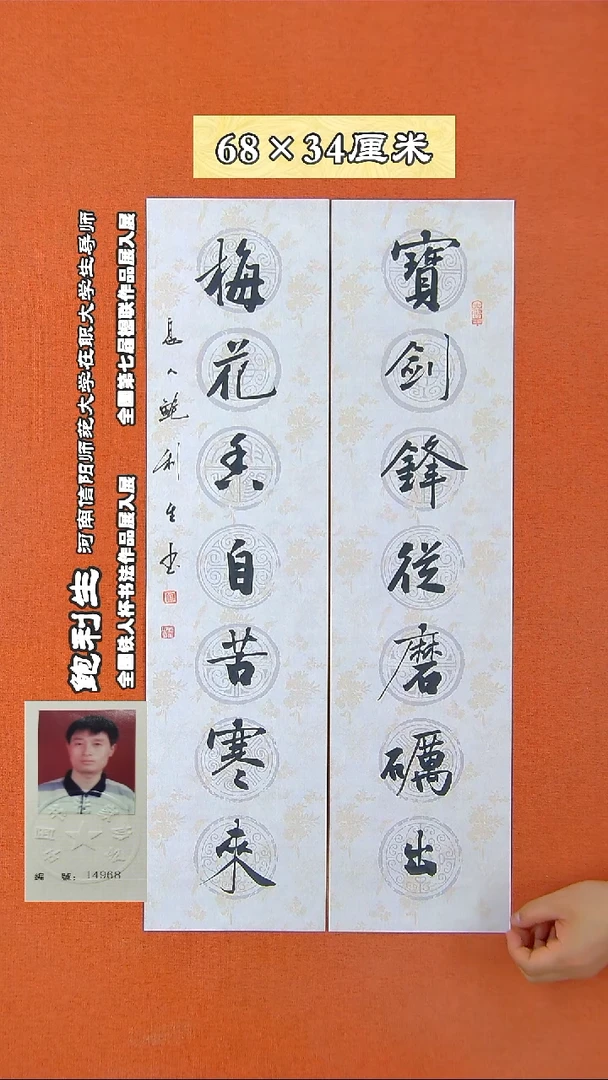 68×34厘米
寶劍鋒從磨礪出
梅花香自苦寒來
鮑利生書
鲍利生 河南信阳师范大学在职大学生导师
全国第七届楹联作品展入展
全国铁人杯书法作品展入展
编 號：14968